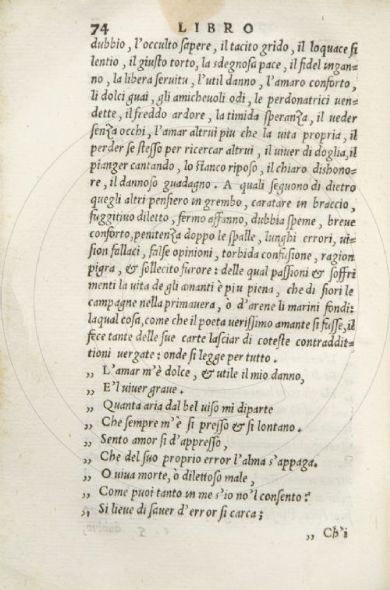 74 LIBRO
dubbio, l'occulto sapere, il tacito grido, il loquace si
lentio, il giusto torto, la sdegnosa pace, il fidel ingan-
no, la libera seruitu, l'util danno, l'amaro conforto,
li dolci guai, gli amicheuoli odi, le perdonatrici uen-
dette, il freddo ardore, la timida speranza, il ueder
senza occhi, l'amar altrui piu che la uita propria, il
perder se stesso per ricercar altrui, il uiuer di doglia, il
pianger cantando, lo stanco riposo, il chiaro dishono-
re, il dannoso guadagno. A quali seguono di dietro
quegli altri pensiero in grembo, caratare in braccio,
fuggitiuo diletto, fermo affanno, dubbia speme, breue
conforto, penitenza doppo le spalle, lunghi errori, ui-
sion fallaci, false opinioni, torbida confusione, ragion
pigra, & sollecito furore: delle qual passioni & soffri
menti la uita de gli amanti è piu piena, che di fiori le
campagne nella primauera, ò d'arene li marini fondi:
laqual cosa, come che il poeta uerissimo amante si fusse, il
fece tante delle sue carte lasciar di coteste contraddit-
tioni uergate: onde si legge per tutto.
„ L'amar m'è dolce, & utile il mio danno,
„ E'l uiuer graue.
„ Quanta aria dal bel uiso mi diparte
„ Che sempre m'è si presso & si lontano.
„ Sento amor si d'appresso,
„ Che del suo proprio error l'alma s'appaga.
„ O uiua morte, ò dilettoso male,
„ Come puoi tanto in me s'io no'l consento?
„ Si lieue di sauer d'error si carca;
„ Ch'i